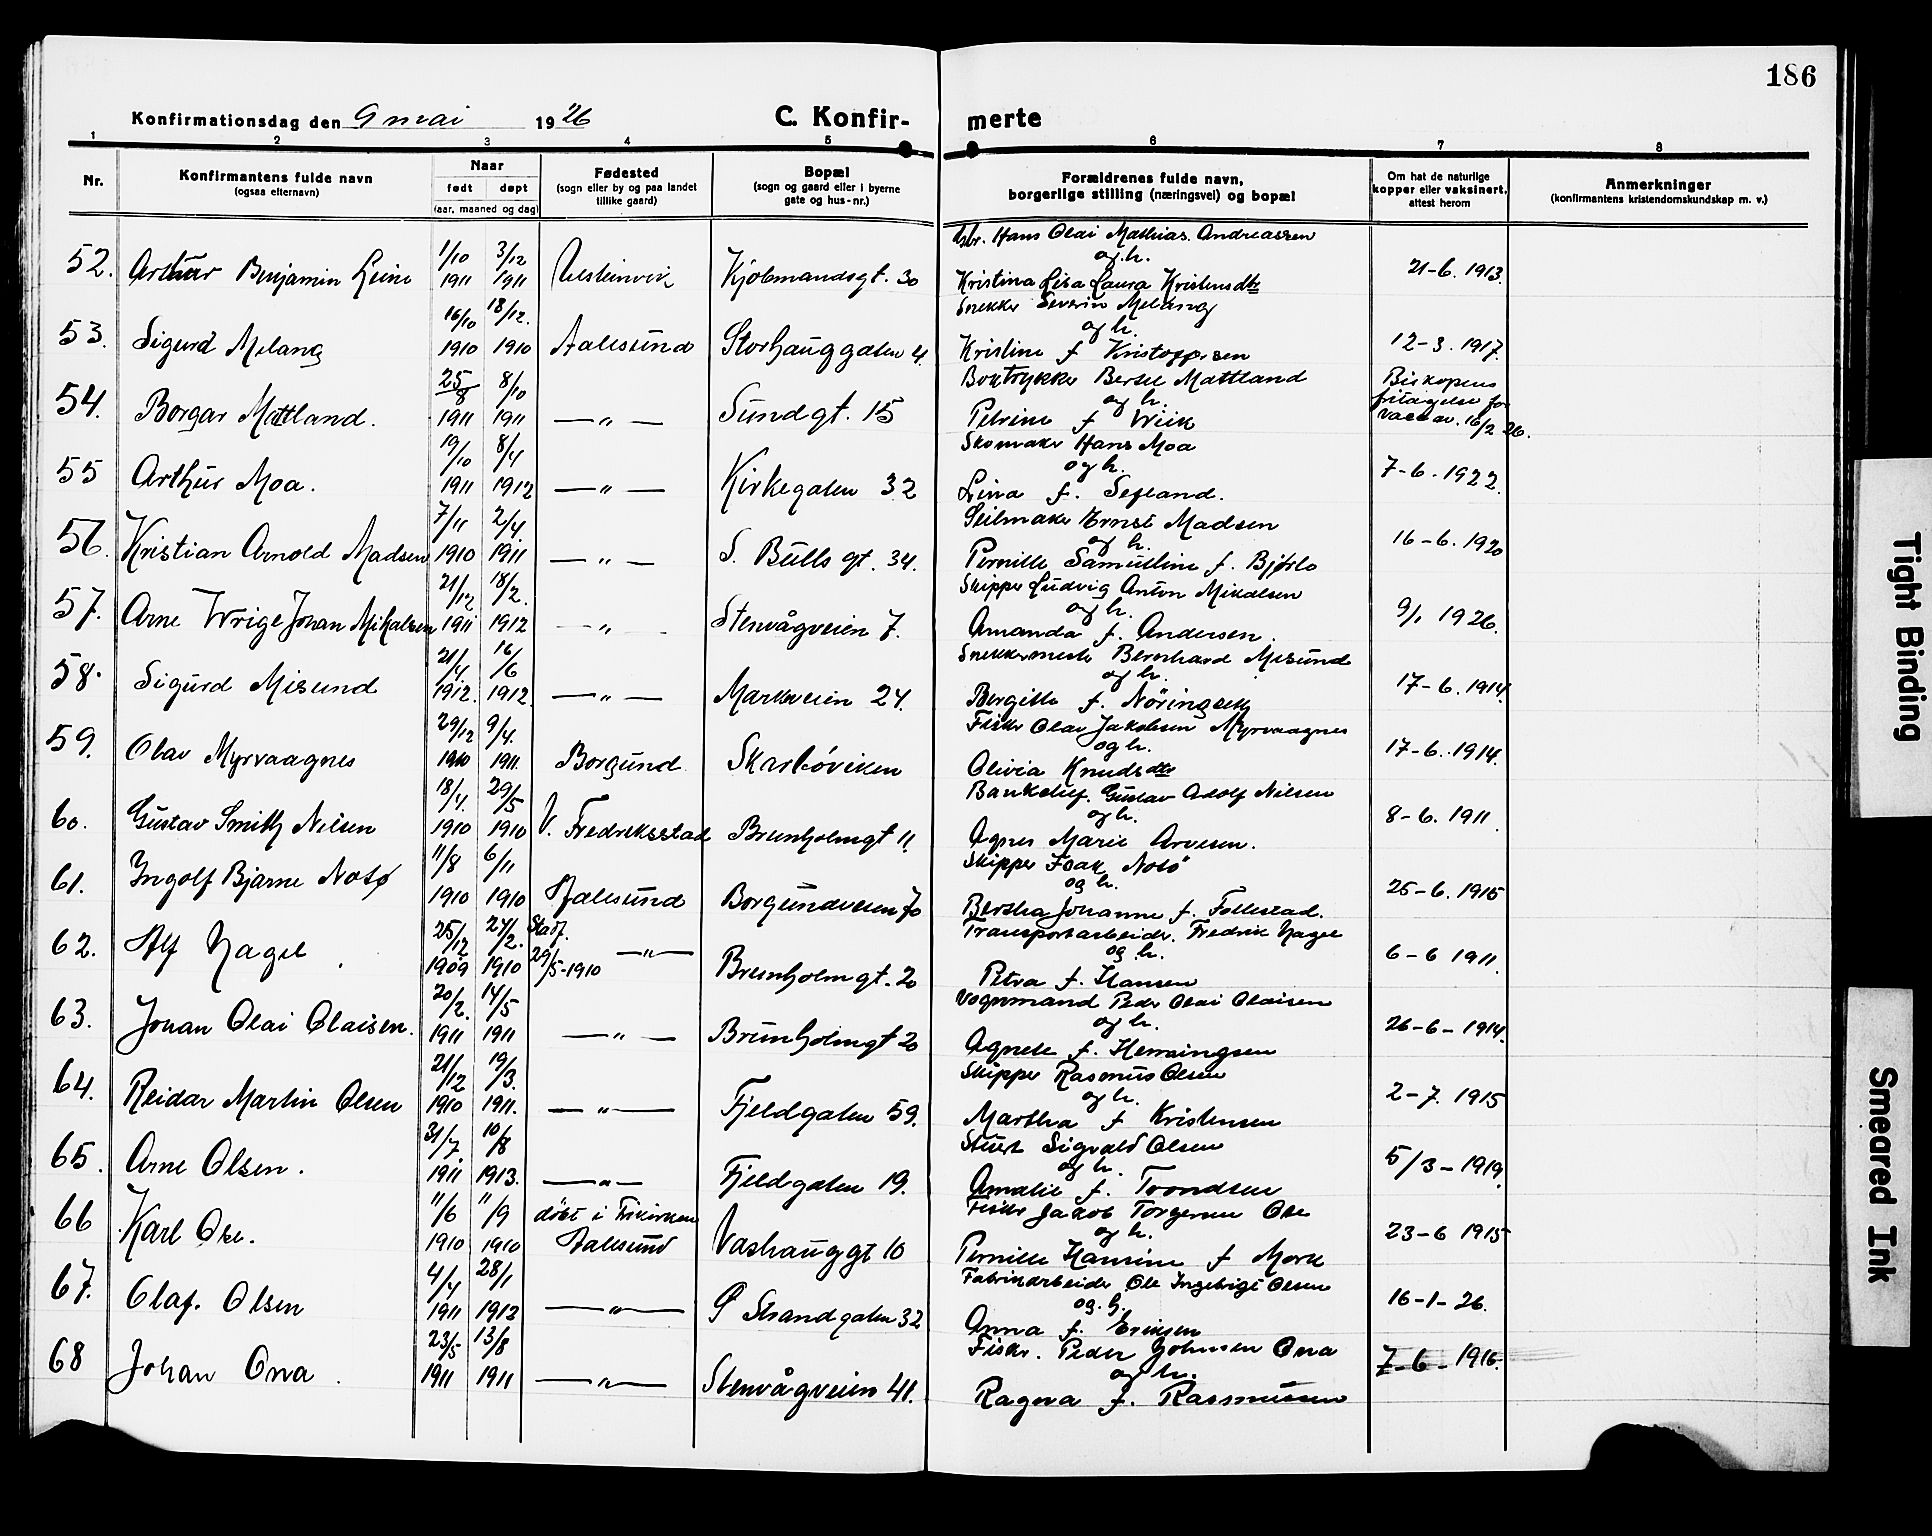 186
Konfirmationsdag den 9 mai 1926
C. Konfirmerte
1 2 3 4 5 6 7 8
Nr.
Konfirmantens fulde navn
(ogsaa efternavn)
Naar
født døpt
(aar, maaned og dag)
Fødested
(sogn eller by og paa landet
tillike gaard)
Bopæl
(sogn og gaard eller i byerne
gate og hus-nr.)
Forældrenes fulde navn,
borgerlige stilling (næringsvei) og bopæl
Om hat de naturlige
kopper eller vaksinert,
attest herom
Anmerkninger
(konfirmantens kristendomskundskap m. v.)
52. Arthur Benjamin Leine 1/10 1911 3/12 1911 Ulsteinvik Kjøbmandsgt. 30
Hans Olai Mathias Andreassen
og h.
Kristina Lisa Laura Kristensdtr
21-6. 1913.
53. Sigurd Melang 16/10 1910 18/12. 1910 Aalesund Storhauggaten 4.
Snekker Severin Melang
og h.
Kristine f Kristoffersen
12-3. 1917.
54. Borgar Mattland. 25/8 1911 8/10 1911 —„— Sundgt. 15
Boktrykker Bertel Mattland
og h.
Petrine f Wiik
Biskopens
fritagelse for
vaccav. 16/2 26.
55 Arthur Moa. 19/10 1911 8/4 1912 —„— Kirkegaten 32
Skomaker Hans Moa
og h.
Lina f. Sefland.
7-6. 1922.
56. Kristian Arnold Madsen 7/11 1910 2/4. 1911 —„— S. Bulls gt. 34.
Seilmaker Ernst Madsen
og h.
Pernille Samueline f. Bjørlo
16-6. 1920
57. Arne Wrige Johan Mikalsen 21/12 1911 18/2. 1912 —„— Stenvågveien 7.
Skipper Ludvig Anton Mikalsen
og h.
Amanda f. Andersen.
9/1 1926.
58. Sigurd Misund 21/4 1912. 16/6 1912. —„— Marksveien 24.
Snekkermester Bernhard Misund
og h.
Bergitte f. Nöringseth
17-6. 1914
59. Olav Myrvaagnes 29/12 1910 9/4. 1911. Borgund Skarbøviken
Fisker Olav Jakobsen Myrvaagnes
og h.
Olivia Knudsdtr
17-6. 1914.
60. Gustav Smith Nilsen 18/4. 1910 29/5 1910 V. Fredriksstad Brunholmgt 11.
Bankchef. Gustav Adolf Nilsen
og h.
Agnes Marie Arvesen.
8-6. 1911
61. Ingolf Bjarne Notø 11/8 1910 6/11 1910 Aalesund Borgundveien 70
Skipper Isak Notö
og h.
Bertha Johanne f. Follestad.
25-6. 1915
62. Alf Nagel 25/12 1909 27/2. 1910 Stadf. 29/5-1910 —„— Brunholmgt. 20
Transportarbeider. Fredrik Nagel
og h.
Petra f. Hansen
6-6 1911.
63. Johan Olai Olaisen. 20/2. 1911 14/5 1911 —„— Brunholmgt 20
Vognmand Peder Olai Olaisen
og h.
Agnete f. Henningsen
26-6-1914.
64. Reidar Martin Olsen 21/12 1910 19/3. 1911. —„— Fjeldgaten 59.
Skipper Rasmus Olsen
og h.
Martha f Kristensen
2-7. 1915
65. Arne Olsen. 31/7. 1911 10/8 1913. —„— Fjeldgaten 19.
Stuert Sigvald Olsen
og h.
Amalie f. Trondsen
5/3-1919.
66 Karl Ose. 11/6 1910 11/9 1910 døbt i Frikirken Aalesund Vashauggt 10
Fisker Jakob Torgersen Ose
og h.
Pernille Hansine f Mork
23-6 1915
67. Olaf. Olsen 4/4 1911 28/1 1912 —„— Ø Strandgaten 32
Fabrikarbeider Ole Ingebrigt Olsen
og. h.
Anna f. Eriksen
16-1-26.
68 Johan Ona. 23/5 1911 13/8 1911 —„— Stenvågveien 41.
Fisker. Peder Johnsen Ona
og h.
Ragna f. Rasmussen
7-6-1916.
Tight Binding
Smeared Ink